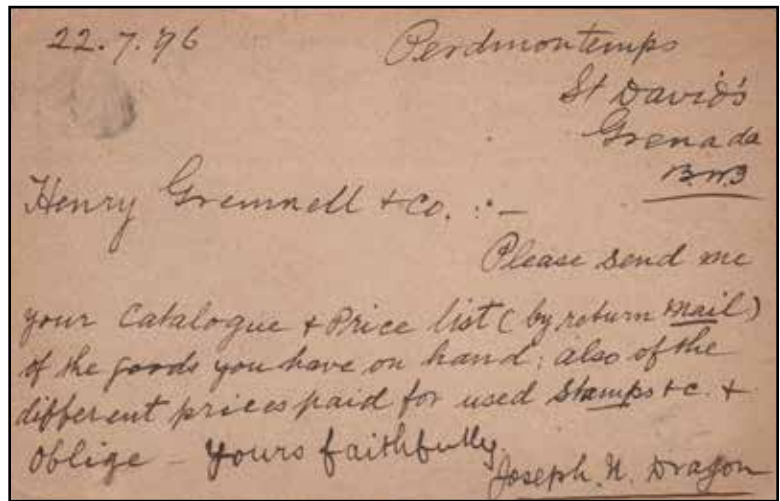 22.7.96
Perdmontemps
St David's
Grenada
B.W.I
Henry Gremnell & Co. :-
Please send me
your Catalogue & Price list (by return mail)
of the goods you have on hand; also of the
different prices paid for used Stamps &c. &
oblige - Yours faithfully
Joseph. N. Dragon